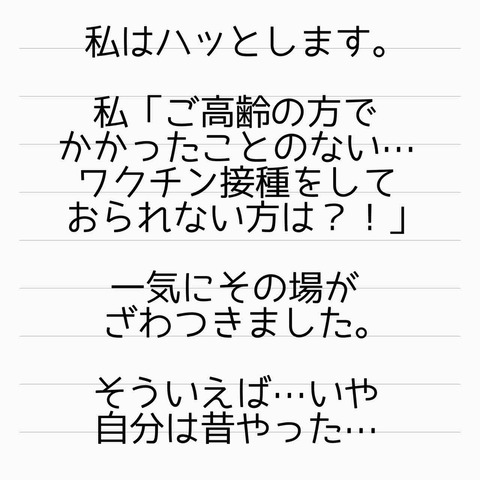 私はハッとします。
私「ご高齢の方で
かかったことのない…
ワクチン接種をして
おられない方は？！」
一気にその場が
ざわつきました。
そういえば…いや
自分は昔やった…